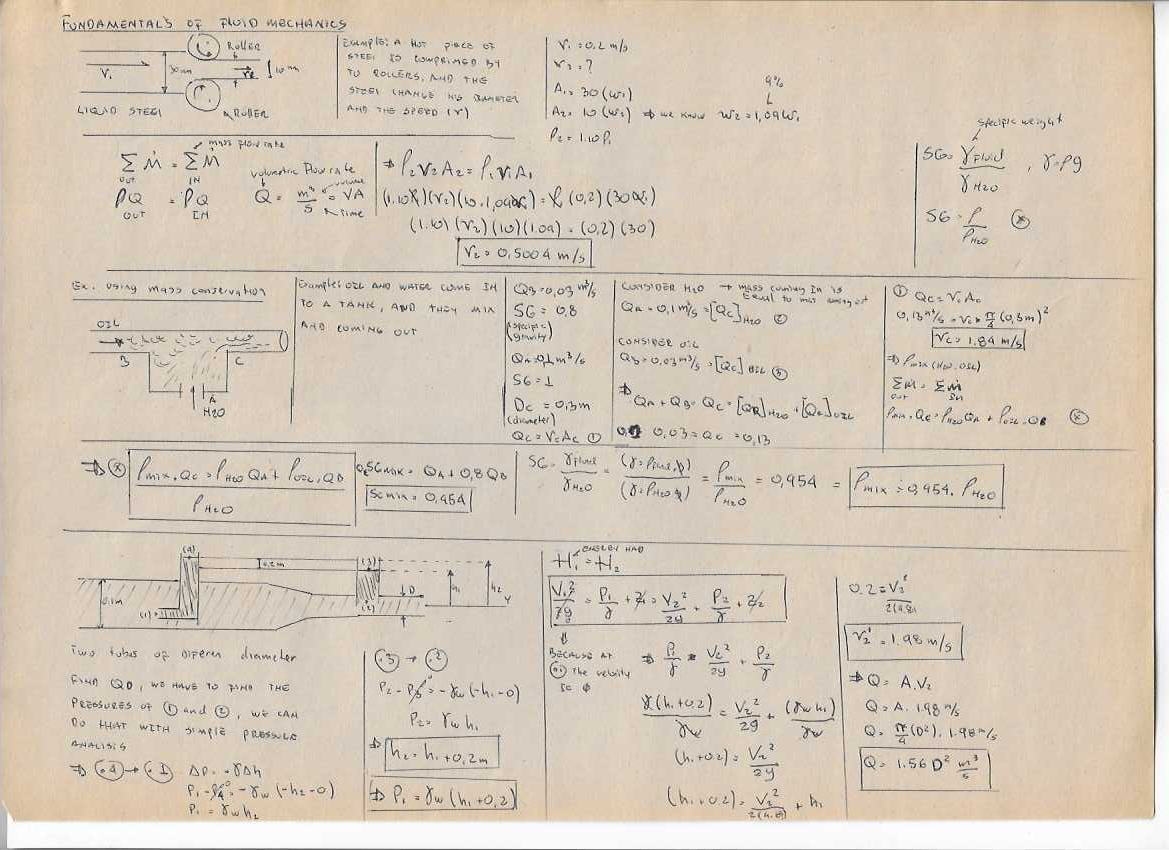 FUNDAMENTAL'S OF FLUID MECHANICS
ROLLER
V1
30mm
V2
10 mm
LIQUID STEEL
ROLLER
EXAMPLE: A HOT PIECE OF
STEEL IS COMPRIMED BY
TO ROLLERS, AND THE
STEEL CHANGE HIS DIAMETER
AND THE SPEED (V)
V1 = 0.2 m/s
V2 = ?
A1 = 30 (w1)
9%
A2 = 10 (w2) ⇒ WE KNOW w2 = 1,09w1
ρ2 = 1.10 ρ1
mass flow rate
Σ Ṁ = Σ Ṁ
OUT IN
ρQ = ρQ
OUT IN
Volumetric Flow rate
Q = m³/s = VA
volume
time
⇒ ρ2 V2 A2 = ρ1 V1 A1
(1.10 ρ1)(V2)(10 . 1,09w1) = ρ1 (0,2)(30w1)
(1.10)(V2)(10)(1.09) = (0,2)(30)
V2 = 0,5004 m/s
specific weight
SG = γFluid / γH2O , γ = ρg
SG = ρ / ρH2O (*)
Ex. using mass conservation
OIL
B
C
A
H2O
Example: OIL AND WATER COME IN
TO A TANK, AND THEY MIX
AND COMING OUT
QB = 0,03 m³/s
SG = 0,8
(specific gravity)
QA = 0,1 m³/s
SG = 1
DC = 0,3m
(diameter)
QC = VC AC ①
CONSIDER H2O → mass coming in is
Equal to mass coming out
QA = 0,1 m³/s = [QC]H2O ②
CONSIDER OIL
QB = 0,03 m³/s = [QC]OIL ③
⇒
QA + QB = QC = [QC]H2O + [QC]OIL
0,1 0,03 = QC = 0,13
① QC = VC AC
0,13 m³/s = VC × π/4 (0,3m)²
VC = 1.84 m/s
⇒ ρmix (H2O, OIL)
Σ Ṁ = Σ Ṁ
OUT IN
ρmix . QC = ρH2O QA + ρOIL . QB (*)
⇒ (*) ρmix . QC = ρH2O QA + ρOIL . QB
ρH2O
SGMIX = QA + 0,8 QB
SGmix = 0,954
SG = γFluid / γH2O = (γ = ρFluid . g) / (γ = ρH2O g) = ρmix / ρH2O = 0,954 = ρmix = 0,954 . ρH2O
(4)
0.2m
(3)
0.1m
(1)
(2)
D
h1
h2
Y
Two tubes of diferen diameter
FIND Q(D), WE HAVE TO FIND THE
PRESSURES OF ① and ②, WE CAN
DO THAT WITH SIMPLE PRESSURE
ANALISIS
⇒ (.4) → (.1) ΔP = γΔh
P1 - P4 = -γw (-h2 - 0)
P1 = γw h2
(.3) → (.2)
P2 - P3 = -γw (-h1 - 0)
P2 = γw h1
⇒ h2 = h1 + 0,2m
⇒ P1 = γw (h1 + 0,2)
ENERGY HAD
H1 = H2
V1²/2g + P1/γ + z1 = V2²/2g + P2/γ + z2
⇓
BECAUSE AT
(.1) the velocity
IS ∅
⇒ P1/γ = V2²/2g + P2/γ
γ(h1 + 0.2)/γw = V2²/2g + (γw h1)/γw
(h1 + 0.2) = V2²/2g
(h1 + 0.2) = V2²/2(9.8) + h1
0.2 = V2²/2(9.8)
V2 = 1.98 m/s
⇒ Q = A.V2
Q = A. 1.98 m/s
Q = π/4 (D²). 1.98 m/s
Q = 1.56 D² m³/s